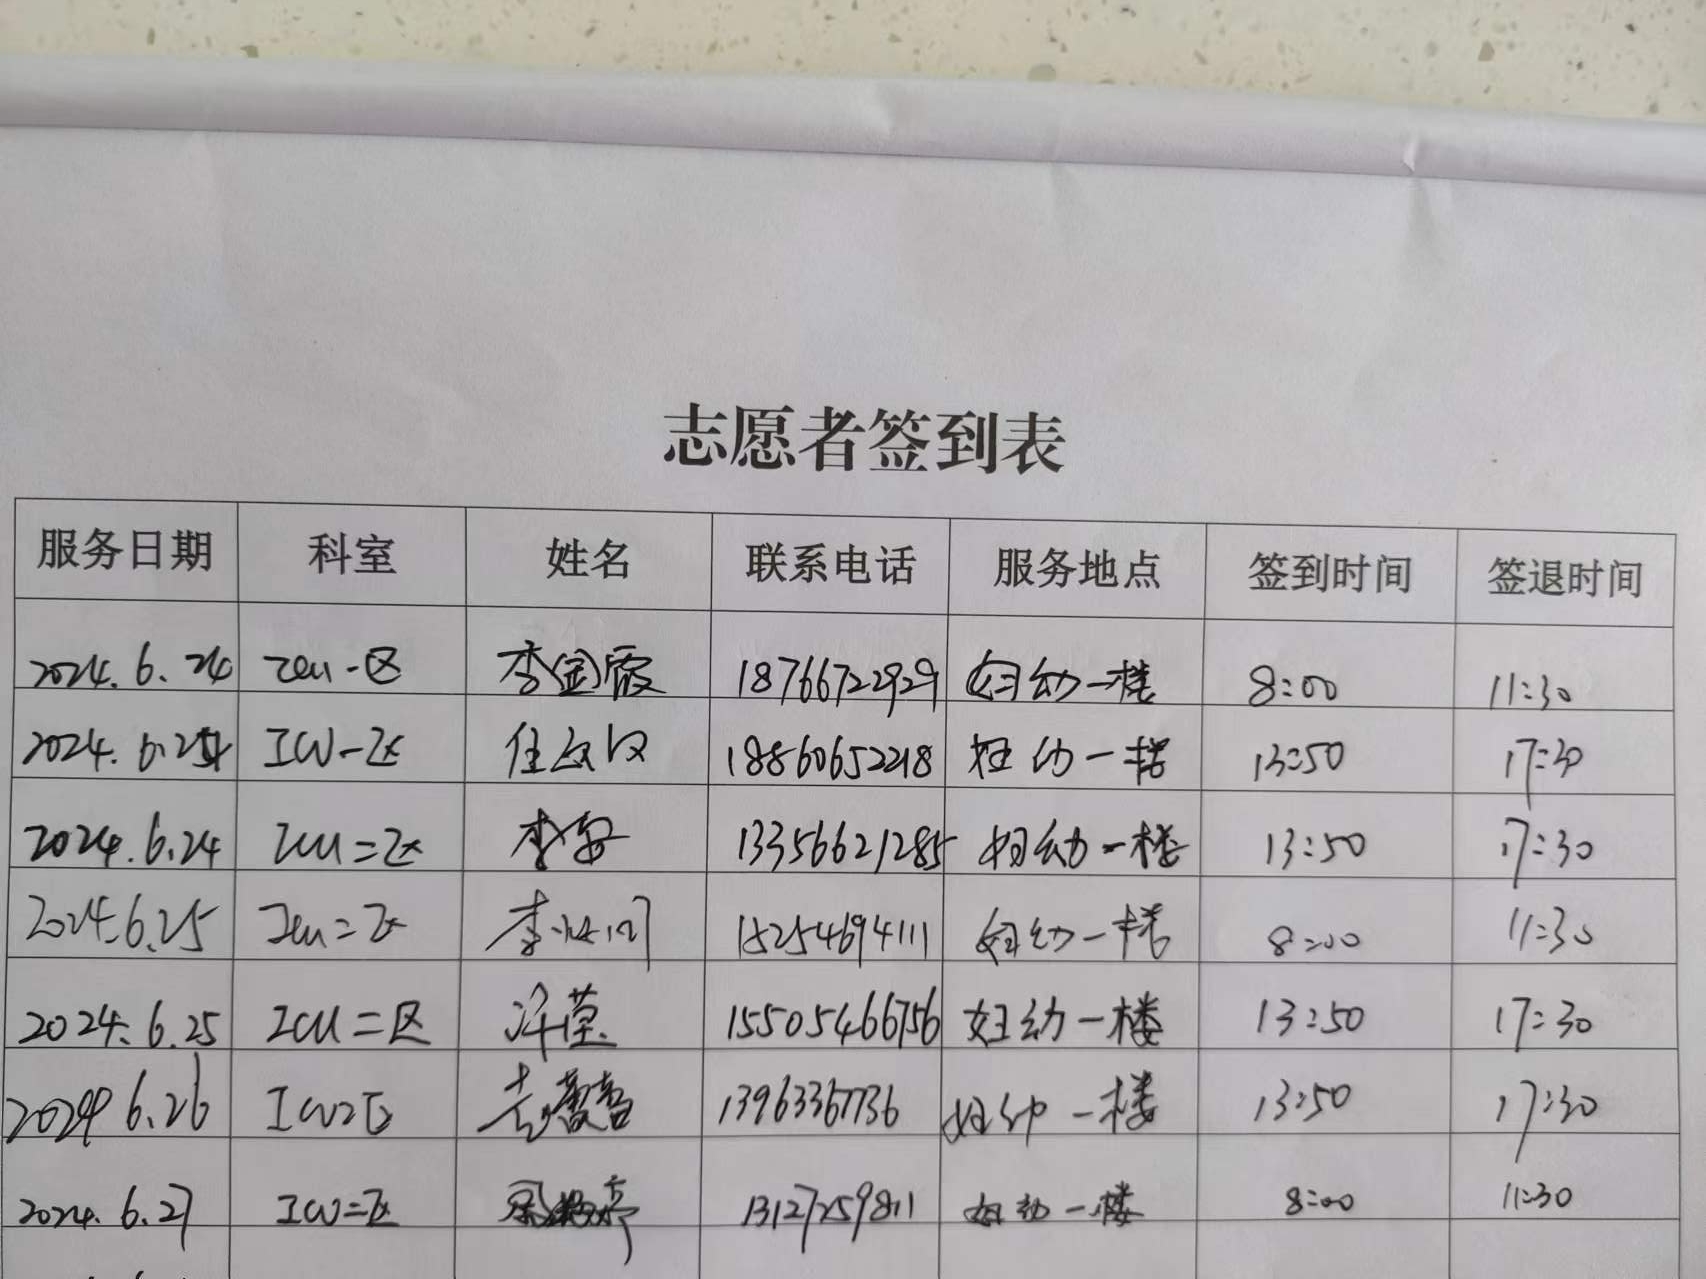 志愿者签到表
服务日期 科室 姓名 联系电话 服务地点 签到时间 签退时间
2024.6.24 ICU一区 李国霞 18766722929 妇幼一楼 8:00 11:30
2024.6.24 ICU一区 18860652218 妇幼一楼 13:50 17:30
2024.6.24 ICU二区 李安 13356621285 妇幼一楼 13:50 17:30
2024.6.25 ICU二区 李 18254694111 妇幼一楼 8:00 11:30
2024.6.25 ICU二区 15505466756 妇幼一楼 13:50 17:30
2024 6.26 ICU2区 13963367736 妇幼一楼 13:50 17:30
2024.6.27 ICU二区 13127259811 妇幼一楼 8:00 11:30